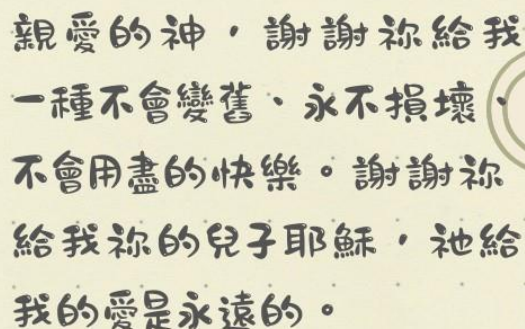 親愛的神，謝謝祢給我
一種不會變舊、永不損壞、
不會用盡的快樂。謝謝祢
給我祢的兒子耶穌，祂給
我的愛是永遠的。